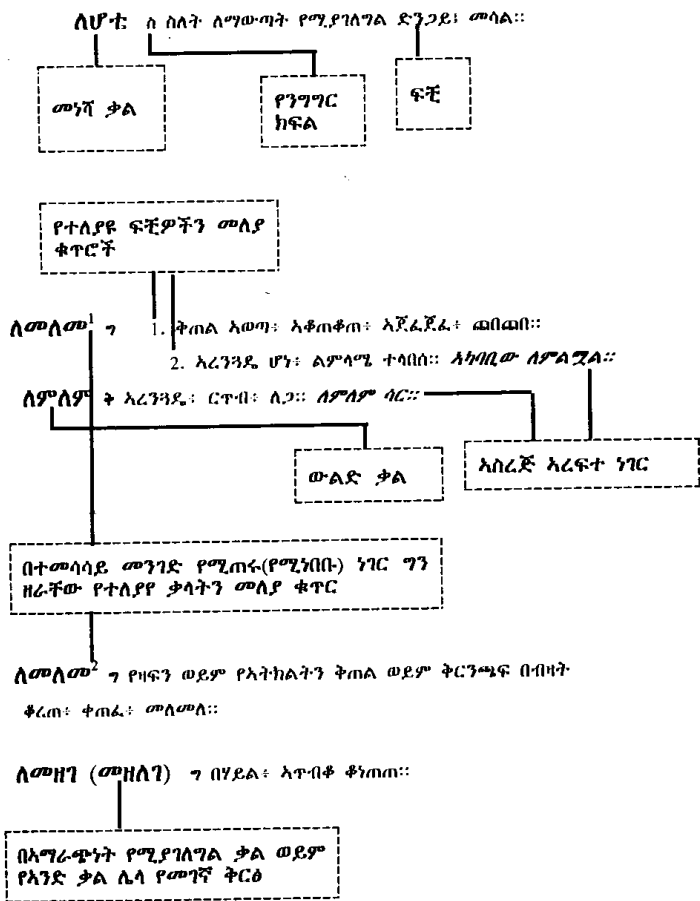 ለሆቴ ስ ስለት ለማውጣት የሚያገለግል ድንጋይ፤ መሳል።
መነሻ ቃል
የንግግር
ክፍል
ፍቺ
የተለያዩ ፍቺዎችን መለያ
ቁጥሮች
ለመለመ¹ ግ 1. ቅጠል ኣወጣ፥ ኣቆጠቆጠ፥ ኣጀፈጀፈ፥ ጨበጨበ።
2. ኣረንጓዴ ሆነ፥ ልምላሜ ተላበሰ። ኣካባቢው ለምልሟል።
ለምለም ቅ ኣረንጓዴ፥ ርጥብ፥ ለጋ። ለምለም ሳር።
ውልድ ቃል
ኣስረጅ ኣረፍተ ነገር
በተመሳሳይ መንገድ የሚጠሩ(የሚነበቡ) ነገር ግን
ዘራቸው የተለያየ ቃላትን መለያ ቁጥር
ለመለመ² ግ የዛፍን ወይም የኣትክልትን ቅጠል ወይም ቅርንጫፍ በብዛት
ቆረጠ፥ ቀጠፈ፥ መለመለ።
ለመዘገ (መዘለገ) ግ በሃይል፥ ኣጥብቆ ቆነጠጠ።
በኣማራጭነት የሚያገለግል ቃል ወይም
የኣንድ ቃል ሌላ የመገኛ ቅርፅ